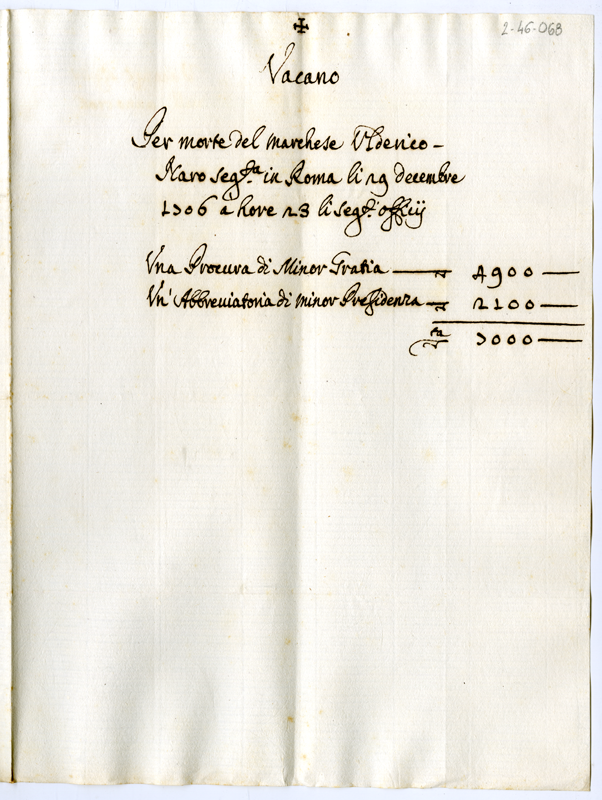 2-46-068
✠
Vacano
Per morte del Marchese Vlderico -
Naro seg.ta in Roma li 29 decembre
1706 a hore 23 li seg.ti officij
Vna Procura di Minor Gratia — 4900 —
Vn' Abbreviatoria di minor Presidenza — 2100 —
7000 —